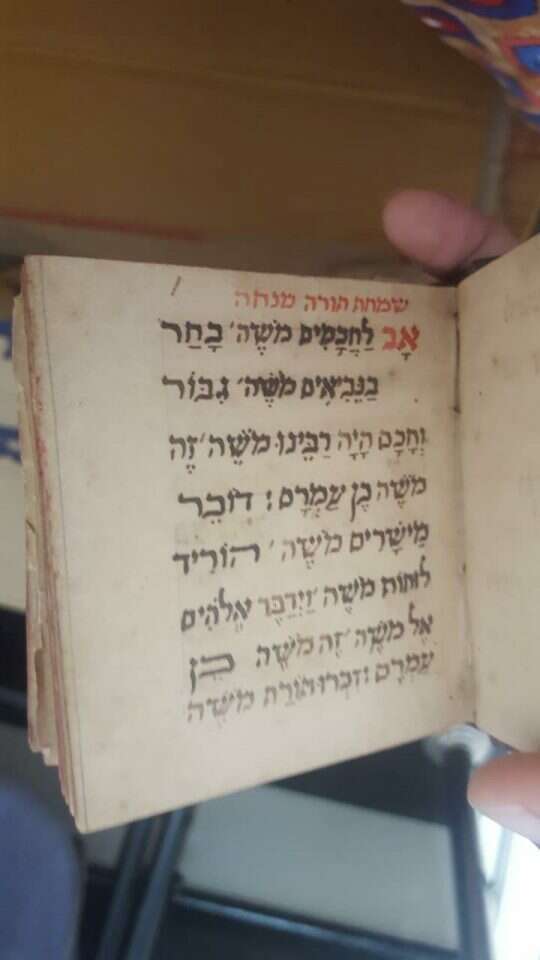 שמחת תורה מנחה
אָב לַחֲכָמִים מֹשֶׁה׳ בָּחַר
בַּנְּבִיאִים מֹשֶׁה׳ גִּבּוֹר
וְחָכָם הָיָה רַבֵּינוּ מֹשֶׁה׳ זֶה
מֹשֶׁה בֶּן עַמְרָם: דּוֹבֵר
מֵישָׁרִים מֹשֶׁה׳ הוֹרִיד
לוּחוֹת מֹשֶׁה׳ וַיְדַבֵּר אֱלֹהִים
אֶל מֹשֶׁה׳ זֶה מֹשֶׁה בֶּן
עַמְרָם: זִכְרוּ תּוֹרַת מֹשֶׁה